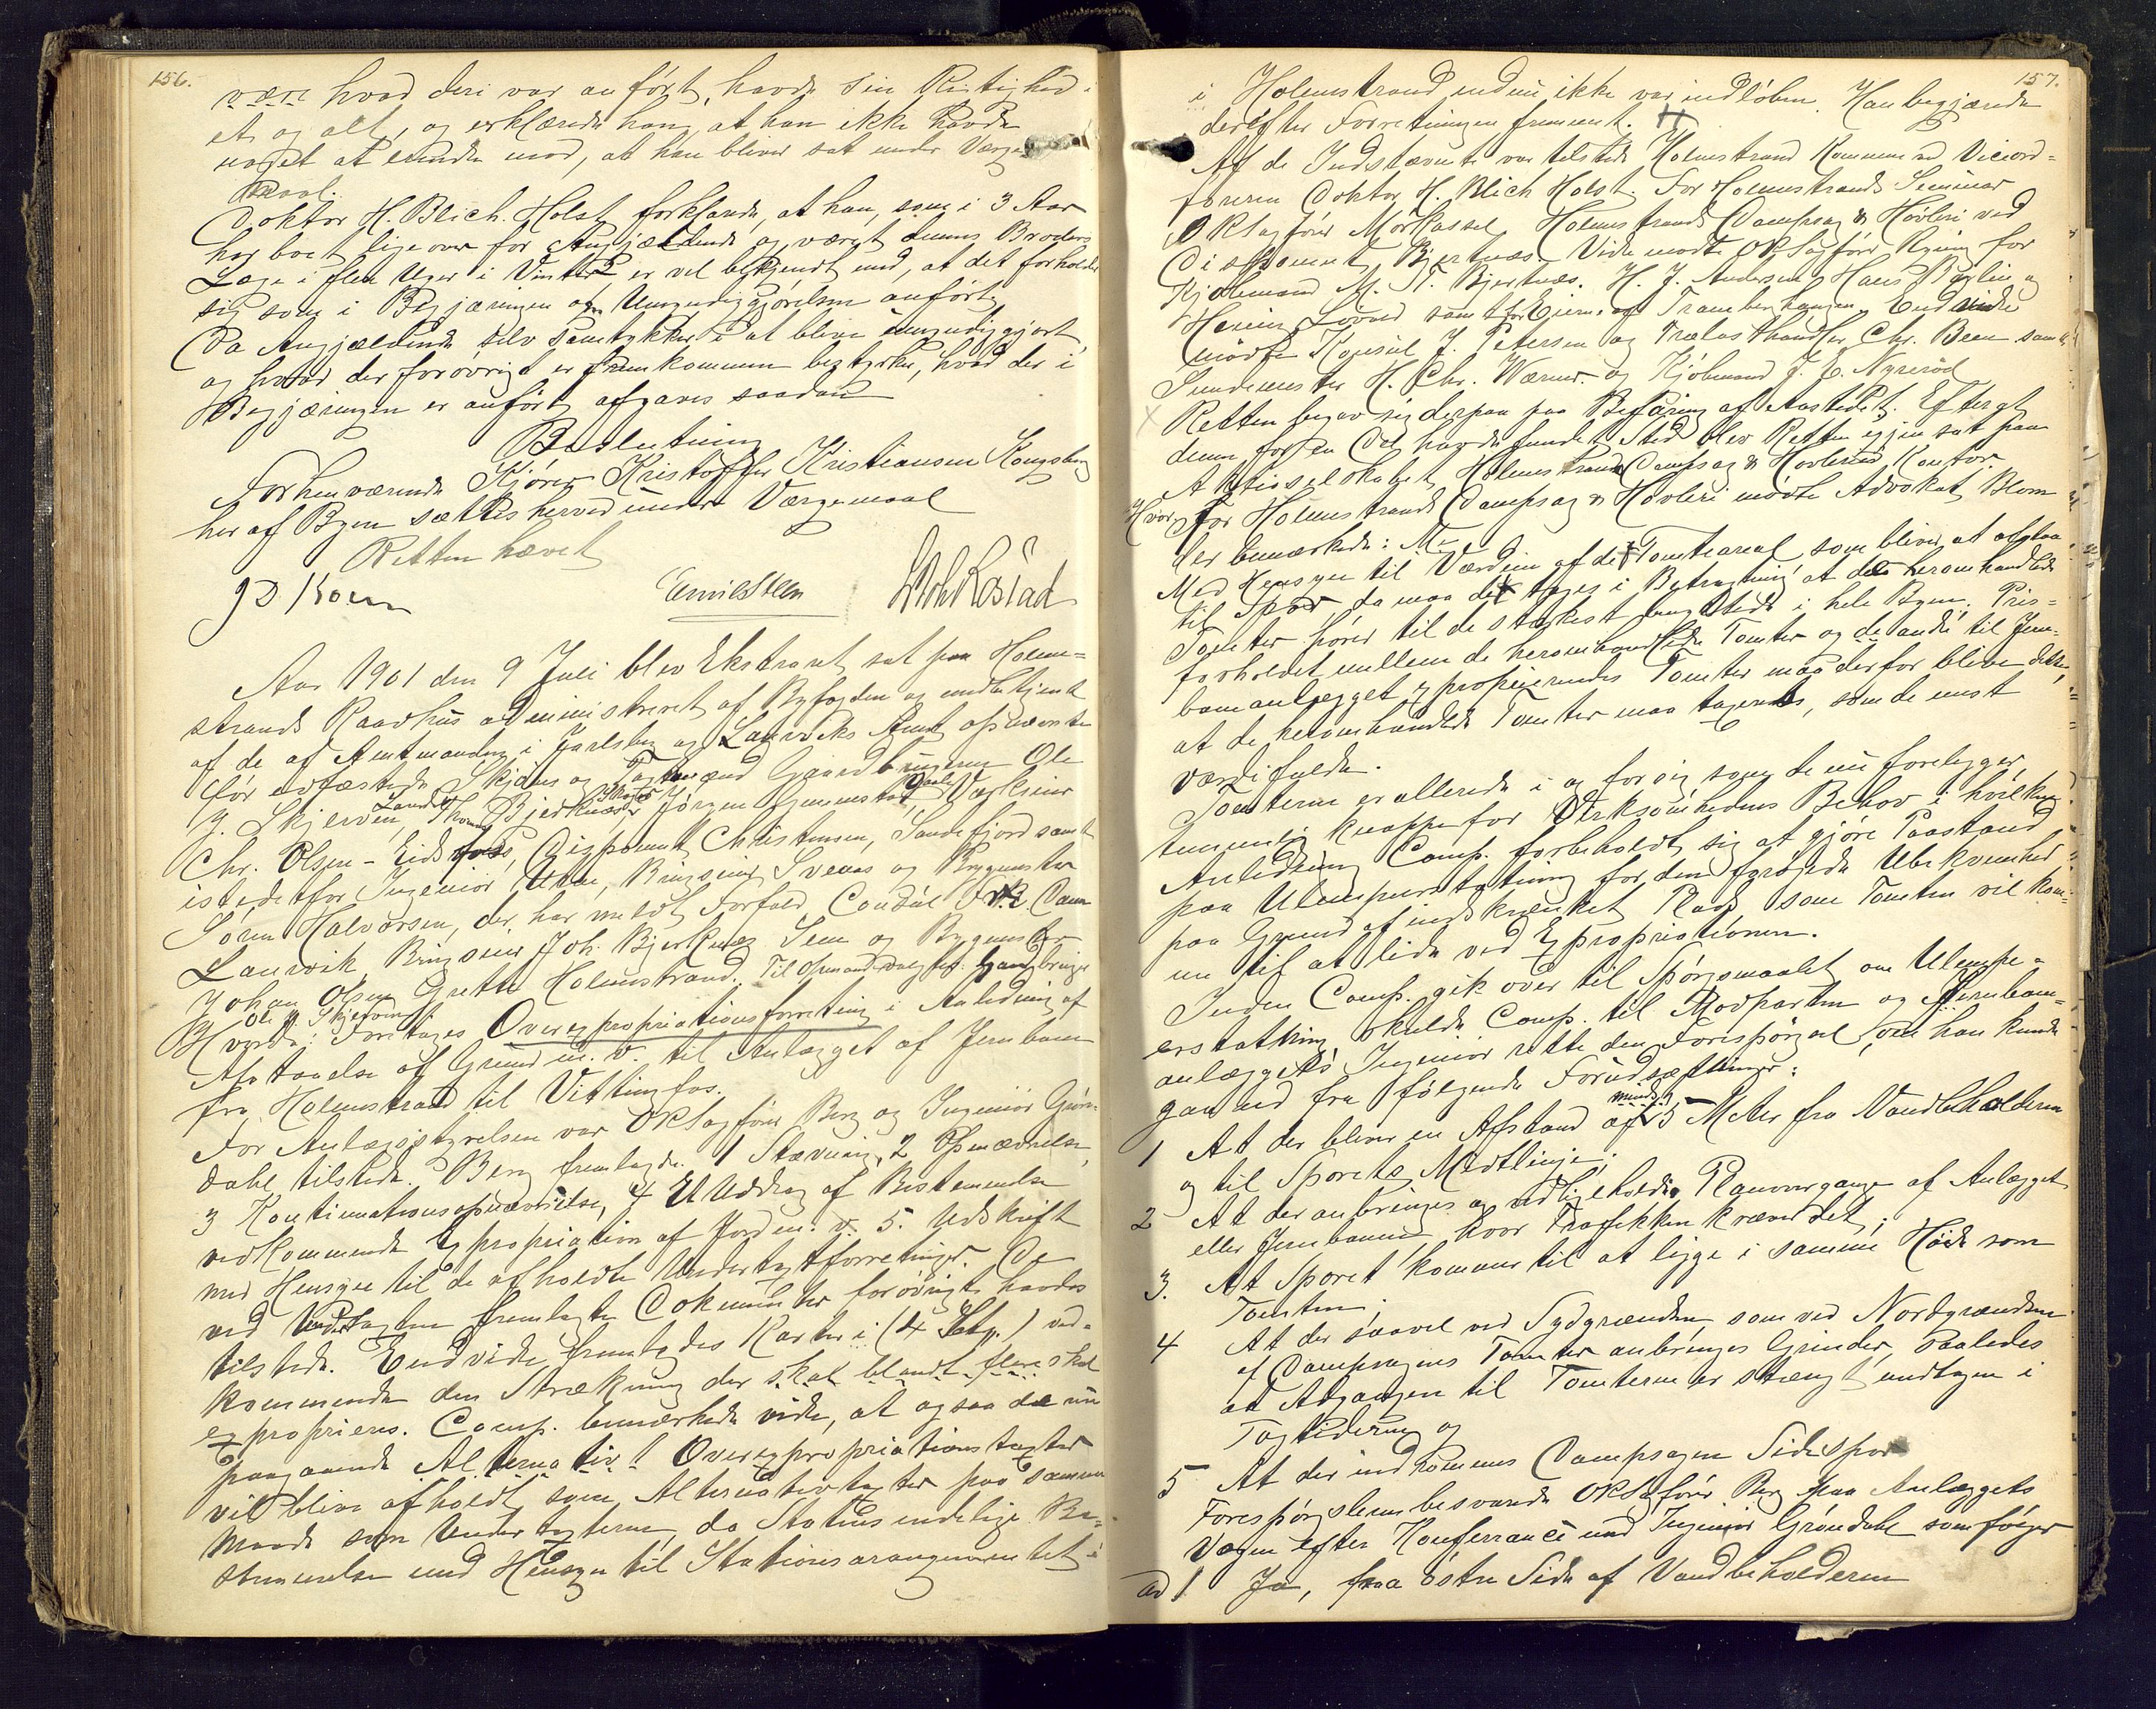 156.
være hvad deri var anført, havde sin Rigtighed i
et og alt, og erklærede han, at han ikke havde
noget at erindre mod, at han bliver sat under Værge
maal.
Doktor H. Blich. Holst forklarede, at han, som i 3 Aar
har boet lige over for Angjældende og været dennes Broders
Læge i flere Uger i Vinter er vel bekjendt med, at det forholder
sig som i Begjæringen om Umyndiggjørelsen anført.
Da Angjældende selv samtykker i at blive umyndiggjort
og hvad der forøvrigt er fremkommen bestyrker, hvad der i
Begjæringen er anført afgaves saadan
Beslutning
Forhenværende Kjører Kristoffer Kristiansen Kongsberg
her af Byen sættes herved under Værgemaal
Retten hævet
Emil Steen
Aar 1901 den 9 Juli blev Ekstraret sat paa Holme-
strands Raadhus administreret af Byfogden og medbetjent
af de af Amtmanden i Jarlsberg og Laurviks Amt opnævnte
før edfæstede Skjøns og Takstmænd Gaardbrugerne Ole
J. Skjerven, Lande, Thomas Bjerknæs, Jørgen Gunnestad, Værkseier
Chr. Olsen - Eidsfos, Disponent Christensen, Sandefjord samt
istedetfor Ingeniør Utne, Brugseier Svenas og Bygmester
Søren Halvorsen, der har meldt Forfald, Consul O. Dan
Laurvik, Brugseier Joh. Bjerknes Sem og Bygmester
Johan Olsen Grette Holmestrand. Til Opmand valgtes Gaardbruger
Ole J. Skjerven
Hvorda: Foretages Overexpropriationsforretning i Anledning af
Afstaaelse af Grund m. v. til Anlægget af Jernbane
fra Holmestrand til Vittingfos.
For Anlægsstyrelsen var O.R.Sagfører Berg og Ingeniør Grøn-
dahl tilstede. Berg fremlagde 1 Stævning, 2 Opnævnelse,
3 Kontinuationsopnævnelse, 4 Et Uddrag af Bestemmelser
vedkommende Expropriation af Jorden. 5. Udskrift
med Hensyn til de afholdte Undertaxtforretninger. De
ved Undertagten fremlagte Dokumenter forøvrigt havdes
tilstede. Endvidere fremlagdes Karter i (4 Sty.) ved-
kommende den Strækning der skal blandt flere skal
exproprieres. Comp. bemærkede videre, at ogsaa de nu
paagaaende Alternativt Overexpropriationstagter
vil blive afholdt som Alternativtagter paa samme
Maade som Undertagterne, da Statens endelige Be-
stemmelse med Hensyn til Stationsarangementet i
157.
i Holmestrand endnu ikke var indløben. Han begjærede
derefter Forretningen fremmet.
Af de Indstævnte var tilstede Holmestrand Kommune ved Viceord-
føreren Doktor H. Blich Holst. For Holmestrands Seminar
O.R.Sagfører Mørkassel, Holmestrands Dampsag & Høvleri ved
Disponent Bjertnæs. Videre mødte O.R.Sagfører Ryning for
Kjøbmand M. T. Bjertnæs. H. J. Andersen, Hans Bøhlin og
Henrik Løvad samt for Eierne af Tramberghaugen. Endvidere
mødte Konsul J. Petersen og Trælasthandler Chr. Been samt
Smedemester H. Chr. Warner og Kjøbmand J. E. Nyrerød
Retten begav sig derpaa paa Befaring af Aastedet. Efter at
denne for en Del havde fundet Sted blev Retten igjen sat paa
Aktieselskabet Holmestrands Dampsag & Høvleries Kontor.
Hvor For Holmestrands Dampsag & Høvleri mødte Advokat Blom
der bemærkede:
Med Hensyn til Værdien af det Tomteareal som bliver at afstaa
til Spor, da maa det tages i Betragtning at de heromhandlede
Tomter hører til de stærkest benyttede i hele Byen. Pris-
forholdet mellem de heromhandlede Tomter og de andre til Jern-
baneanlægget exproprierendes Tomter maa derfor blive dette,
at de heromhandlede Tomter maa taxeres, som de mest
værdifulde.
Tomterne er allerede i og for sig som de nu foreligger
temmelig knappe for Virksomhedens Behov i hvilken
Anledning Comp. forbeholdt sig at gjøre Paastand
paa Ulempeerstatning for den forøgede Ubekvemhed
paa Grund af indskrænket Plads som Tomten vil kom-
me til at lide ved Expropriationen.
Inden Comp. gik over til Spørgsmaalet om Ulempe-
erstatning skulde Comp. til Modparten og Jernbane-
anlæggets Ingeniør rette den Forespørgsel, om han kunde
gaa ud fra følgende Forudsætninger:
1 At der bliver en Afstand af mindst 5 Meter fra Vandbeholderen
og til Sporets Midtlinje;
2 At der anbringes og vedligeholdes Planovergange af Anlægget
eller Jernbanen, hvor Trafikken kræver det;
3. At Sporet kommer til at ligge i samme Høide som
Tomten;
4 At der saavel ved Sydgrændsen som ved Nordgrændsen
af Dampsagens Tomter anbringes Grinder, saaledes
at Adgangen til Tomterne er stængt undtagen i
Togtiderne og
5 At der indrømmes Dampsagen Sidespor
Forespørgslerne besvarede O.R.Sagfører Berg paa Anlæggets
Vegne efter Konferrance med Ingeniør Grøndahl som følger
ad 1 Ja, fra østre Side af Vandbeholderen